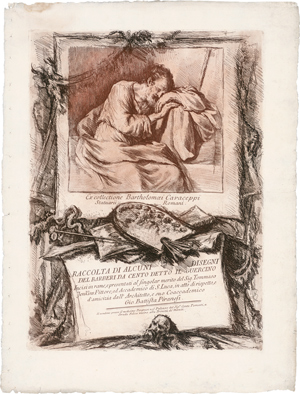 Ex collectione Bartholomei Cavaceppi
Statuarii Romani
RACCOLTA DI ALCUNI DISEGNI
DEL BARBERI DA CENTO DETTO IL GUERCINO
Incisi in rame, e presentati al singolar merito del Sig. Tommaso
Jenkins Pittore, ed Accademico di S. Luca, in atto di rispetto, e
d'amicizia dall' Architetto, e suo Coaccademico
Gio. Battista Piranesi